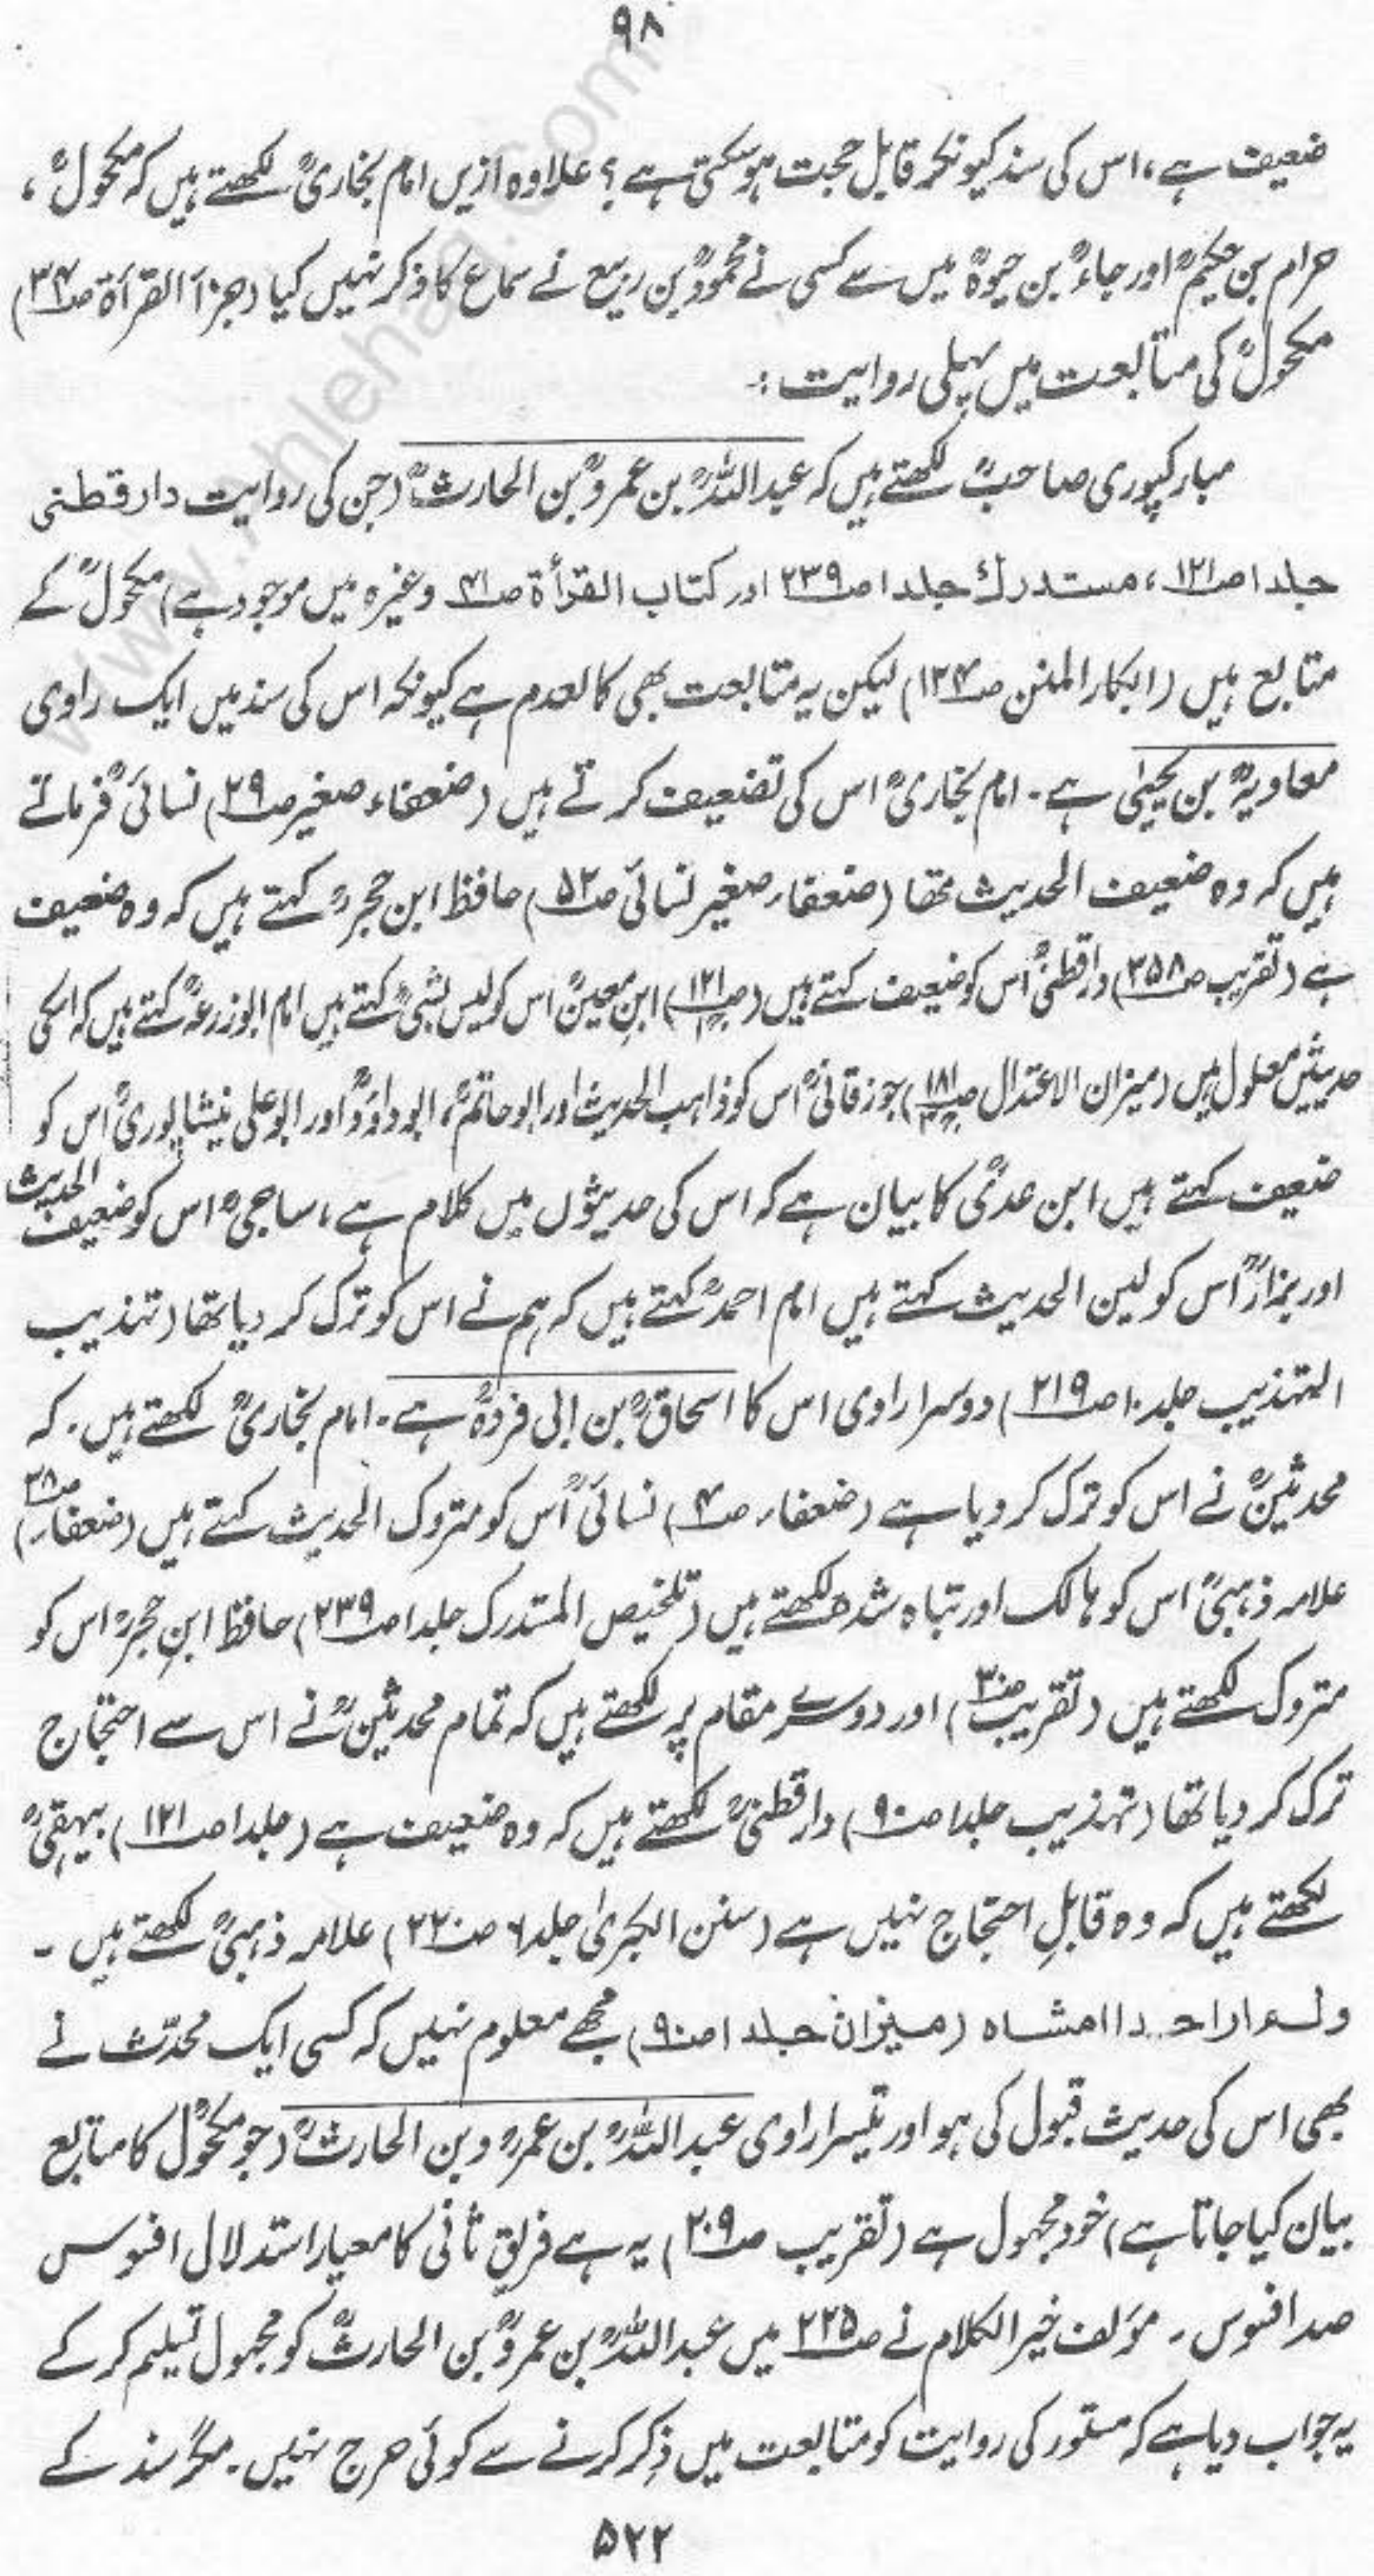 ۹۸
ضعیف ہے، اس کی سند کیونکر قابل حجت ہو سکتی ہے؟ علاوہ ازیں امام بخاریؒ لکھتے ہیں کہ مکحولؒ،
حرام بن حکیمؒ اور رجاءؒ بن حیوۃؒ میں سے کسی نے محمودؓ بن ربیع نے سماع کا ذکر نہیں کیا (جزأ القرأة ص۳۴)
مکحولؒ کی متابعت میں پہلی روایت:۔
مبارکپوری صاحبؒ لکھتے ہیں کہ عبداللہؒ بن عمروؒ بن الحارثؒ (جن کی روایت دارقطنی
جلد۱ ص۱۲۱، مستدرک جلد۱ ص۲۳۹ اور کتاب القرأة ص۴۱ وغیرہ میں موجود ہے) مکحولؒ کے
متابع ہیں (ابکار المنن ص۱۲۴) لیکن یہ متابعت بھی کالعدم ہے کیونکہ اس کی سند میں ایک راوی
معاویہؒ بن یحییٰ ہے۔ امام بخاریؒ اس کی تضعیف کرتے ہیں (ضعفاء صغیر ص۲۹) نسائیؒ فرماتے
ہیں کہ وہ ضعیف الحدیث تھا (ضعفاء صغیر نسائی ص۵۲) حافظ ابن حجرؒ کہتے ہیں کہ وہ ضعیف
ہے (تقریب ص۳۵۸) دارقطنیؒ اس کو ضعیف کہتے ہیں (ص۱۲۱) ابن معینؒ اس کو لیس بشئ کہتے ہیں امام ابوزرعہؒ کہتے ہیں کہ اسکی
حدیثیں معلول ہیں (میزان الاعتدال ص۱۸۱) جوزقانیؒ اس کو ذاہب الحدیث اور ابوحاتمؒ، ابوداؤدؒ اور ابوعلی نیشاپوریؒ اس کو
ضعیف کہتے ہیں ابن عدیؒ کا بیان ہے کہ اس کی حدیثوں میں کلام ہے، ساجیؒ اس کو ضعیف الحدیث
اور بزارؒ اس کو لین الحدیث کہتے ہیں امام احمدؒ کہتے ہیں کہ ہم نے اس کو ترک کر دیا تھا (تہذیب
التہذیب جلد۱۰ ص۲۱۹) دوسرا راوی اس کا اسحاقؒ بن ابی فروہؒ ہے۔ امام بخاریؒ لکھتے ہیں۔ کہ
محدثینؒ نے اس کو ترک کر دیا ہے (ضعفاء ص۴) نسائیؒ اس کو متروک الحدیث کہتے ہیں (ضعفاء ص۳۸)
علامہ ذہبیؒ اس کو ہالک اور تباہ شدہ لکھتے ہیں (تلخیص المستدرک جلد۱ ص۲۳۹) حافظ ابن حجرؒ اس کو
متروک لکھتے ہیں (تقریب ص۳۰) اور دوسرے مقام پر لکھتے ہیں کہ تمام محدثینؒ نے اس سے احتجاج
ترک کر دیا تھا (تہذیب جلد۱ ص۹۰) دارقطنیؒ لکھتے ہیں کہ وہ ضعیف ہے (جلد۱ ص۱۲۱) بیہقیؒ
لکھتے ہیں کہ وہ قابلِ احتجاج نہیں ہے (سنن الکبریٰ جلد۶ ص۲۲۰) علامہ ذہبیؒ لکھتے ہیں ۔
ولم ار احدا امشاہ (میزان جلد۱ ص۹۰) مجھے معلوم نہیں کہ کسی ایک محدّث نے
بھی اس کی حدیث قبول کی ہو اور تیسرا راوی عبداللہؒ بن عمروؒ بن الحارثؒ (جو مکحولؒ کا متابع
بیان کیا جاتا ہے) خود مجہول ہے (تقریب ص۲۰۹) یہ ہے فریقِ ثانی کا معیار استدلال افسوس
صد افسوس۔ مؤلف خیر الکلام نے ص۲۲۵ میں عبداللہؒ بن عمروؒ بن الحارثؒ کو مجہول تسلیم کر کے
یہ جواب دیا ہے کہ مستور کی روایت کو متابعت میں ذکر کرنے سے کوئی حرج نہیں۔ مگر سند کے
۵۲۲
www.ahlehaq.com